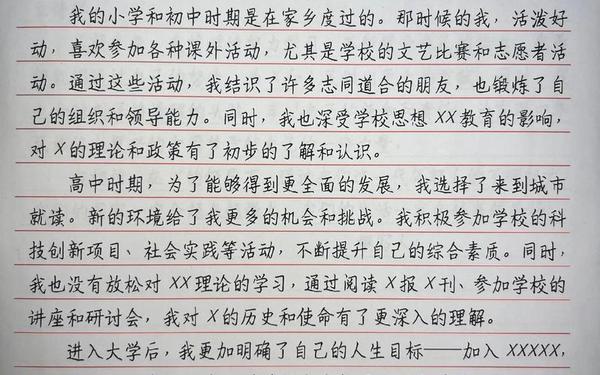 我的小学和初中时期是在家乡度过的。那时候的我，活泼好
动，喜欢参加各种课外活动，尤其是学校的文艺比赛和志愿者活
动。通过这些活动，我结识了许多志同道合的朋友，也锻炼了自
己的组织和领导能力。同时，我也深受学校思想XX教育的影响，
对X的理论和政策有了初步的了解和认识。
高中时期，为了能够得到更全面的发展，我选择了来到城市
就读。新的环境给了我更多的机会和挑战。我积极参加学校的科
技创新项目、社会实践等活动，不断提升自己的综合素质。同时，
我也没有放松对XX理论的学习，通过阅读X报X刊、参加学校的
讲座和研讨会，我对X的历史和使命有了更深入的理解。
进入大学后，我更加明确了自己的人生目标——加入XXXXX，